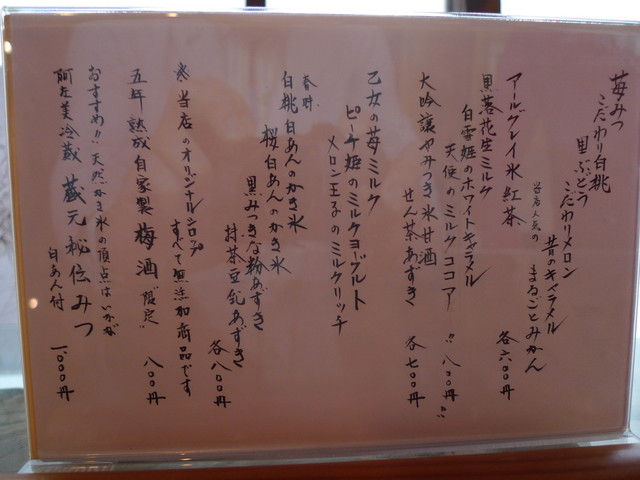 苺みつ
こだわり白桃
黒ぶどう
こだわりメロン
昔のキャラメル
当店人気の
まるごとみかん
各六〇〇円
アールグレイ氷紅茶
黒落花生ミルク
白雪姫のホワイトキャラメル
天使のミルクココアー!! 八〇〇円!!
大吟醸やみつき氷甘酒
せん茶あずき 各七〇〇円
乙女の苺ミルク
ピーチ姫のミルクヨーグルト
メロン王子のミルクリッチ
春時
白桃白あんのかき氷
桜白あんのかき氷
黒みつきな粉あずき
抹茶豆乳あずき
各八〇〇円
※当店のオリジナルシロップ
すべて無添加商品です
五年熟成自家製梅酒"限定" 八〇〇円
おすすめ!!天然かき氷の頂点はいかが
阿左美冷蔵 蔵元秘伝みつ
白あん付 一、〇〇〇円